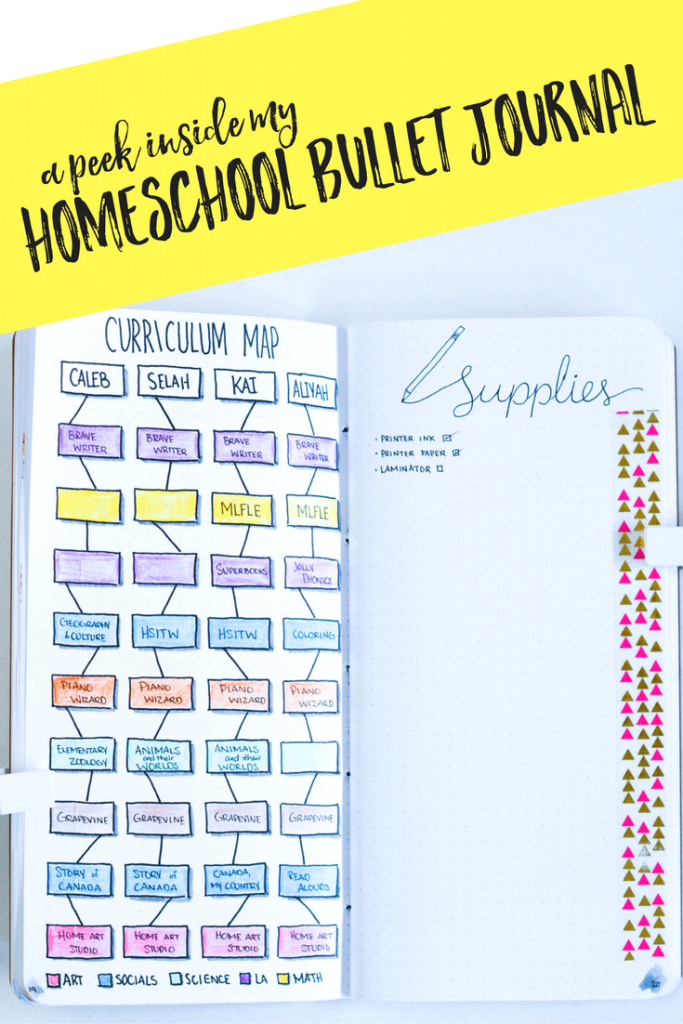 a peek inside my
HOMESCHOOL BULLET JOURNAL
CURRICULUM MAP
CALEB SELAH KAI ALIYAH
BRAVE WRITER BRAVE WRITER BRAVE WRITER BRAVE WRITER
MLFLE MLFLE
SUPERBOOKS JOLLY PHONICS
GEOGRAPHY & CULTURE HSITW HSITW COLORING
PIANO WIZARD PIANO WIZARD PIANO WIZARD PIANO WIZARD
ELEMENTARY ZOOLOGY ANIMALS and their WORLDS ANIMALS and their WORLDS
GRAPEVINE GRAPEVINE GRAPEVINE GRAPEVINE
STORY of CANADA STORY of CANADA CANADA, MY COUNTRY READ ALOUDS
HOME ART STUDIO HOME ART STUDIO HOME ART STUDIO HOME ART STUDIO
ART SOCIALS SCIENCE LA MATH
19
Supplies
· PRINTER INK ☑
· PRINTER PAPER ☑
· LAMINATOR ☐
20